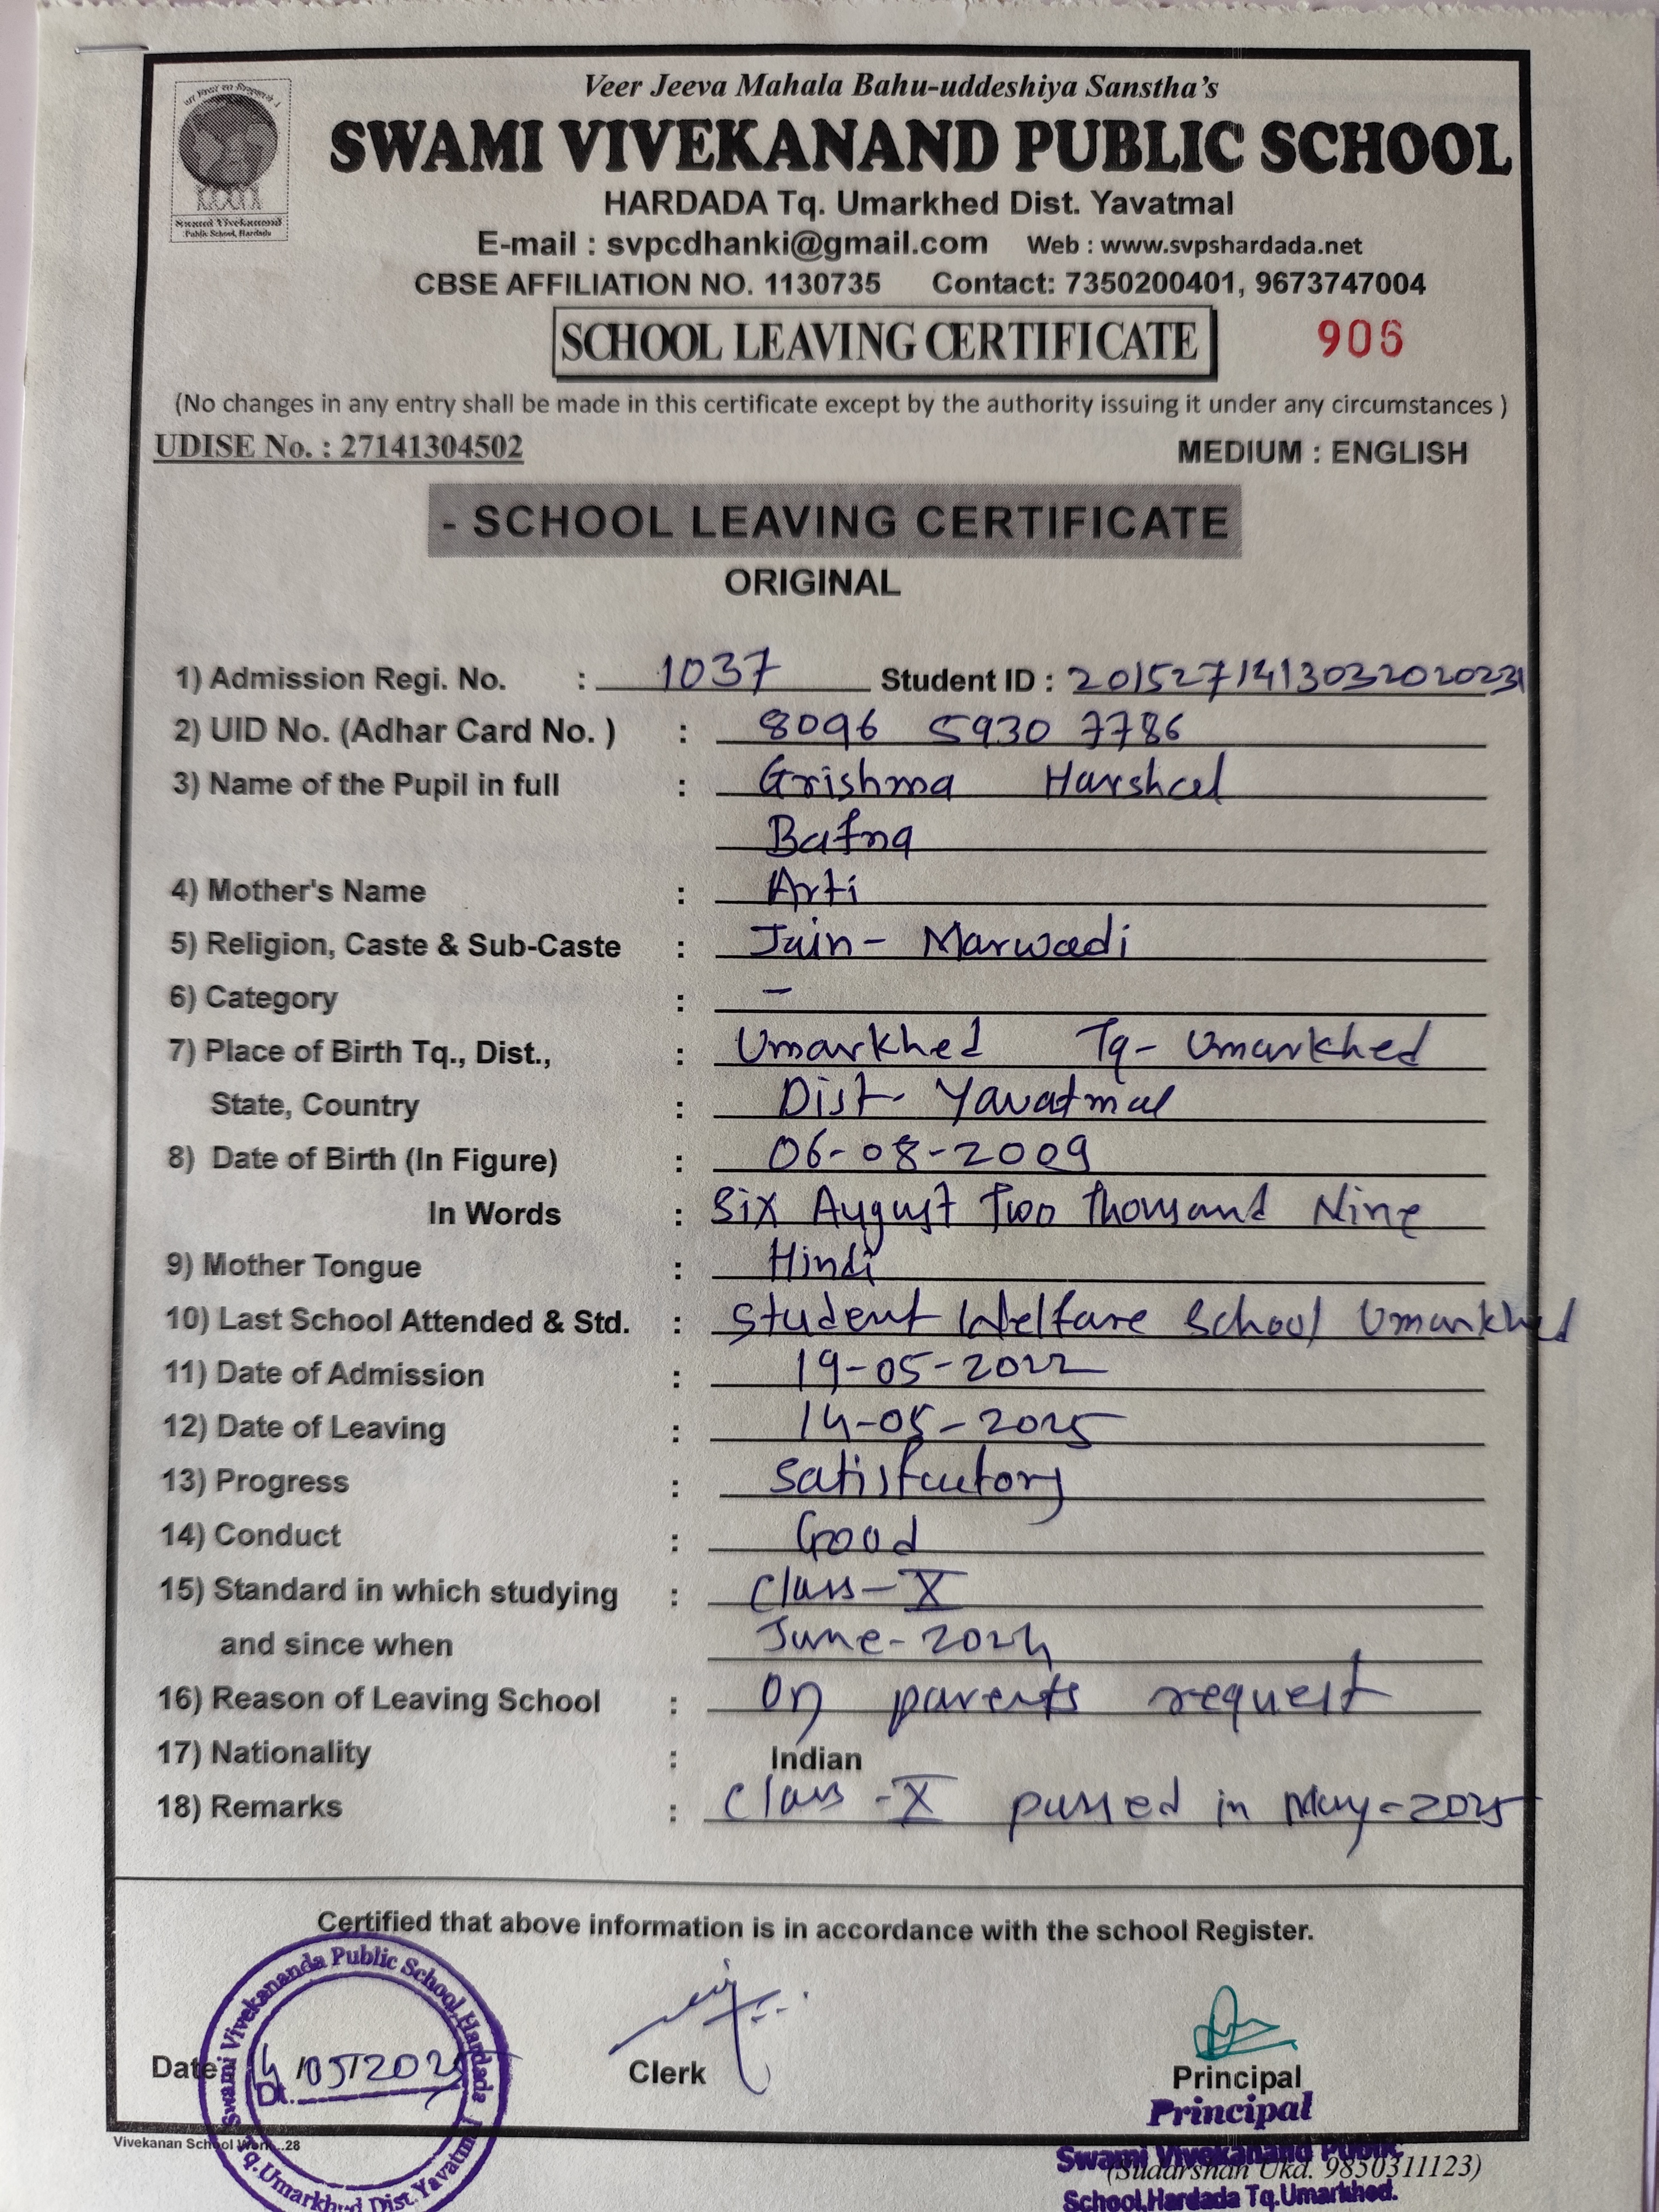 Veer Jeeva Mahala Bahu-uddeshiya Sanstha's
SWAMI VIVEKANAND PUBLIC SCHOOL
Swami Vivekanand
Public School, Hardada
HARDADA Tq. Umarkhed Dist. Yavatmal
E-mail : svpcdhanki@gmail.com Web : www.svpshardada.net
CBSE AFFILIATION NO. 1130735 Contact: 7350200401, 9673747004
SCHOOL LEAVING CERTIFICATE 906
(No changes in any entry shall be made in this certificate except by the authority issuing it under any circumstances )
UDISE No. : 27141304502 MEDIUM : ENGLISH
- SCHOOL LEAVING CERTIFICATE
ORIGINAL
1) Admission Regi. No. : 1037 Student ID : 2015271413032020231
2) UID No. (Adhar Card No. ) : 8096 5930 7786
3) Name of the Pupil in full : Grishma Harshal
Bafna
4) Mother's Name : Arti
5) Religion, Caste & Sub-Caste : Jain - Marwadi
6) Category : -
7) Place of Birth Tq., Dist., : Umarkhed Tq- Umarkhed
State, Country : Dist- Yavatmal
8) Date of Birth (In Figure) : 06-08-2009
In Words : Six August Two Thousand Nine
9) Mother Tongue : Hindi
10) Last School Attended & Std. : Student Welfare School Umarkhed
11) Date of Admission : 19-05-2022
12) Date of Leaving : 14-05-2025
13) Progress : Satisfactory
14) Conduct : Good
15) Standard in which studying : Class-X
and since when June-2024
16) Reason of Leaving School : On parents request
17) Nationality : Indian
18) Remarks : Class -X passed in May-2025
Certified that above information is in accordance with the school Register.
Swami Vivekananda Public School, Hardada
Tq.Umarkhed Dist.Yavatmal
Date: 14/05/2025
Dt.
Clerk
Principal
Principal
Swami Vivekanand Public
School,Hardada Tq.Umarkhed.
(Sudarshan Ukd. 9850311123)